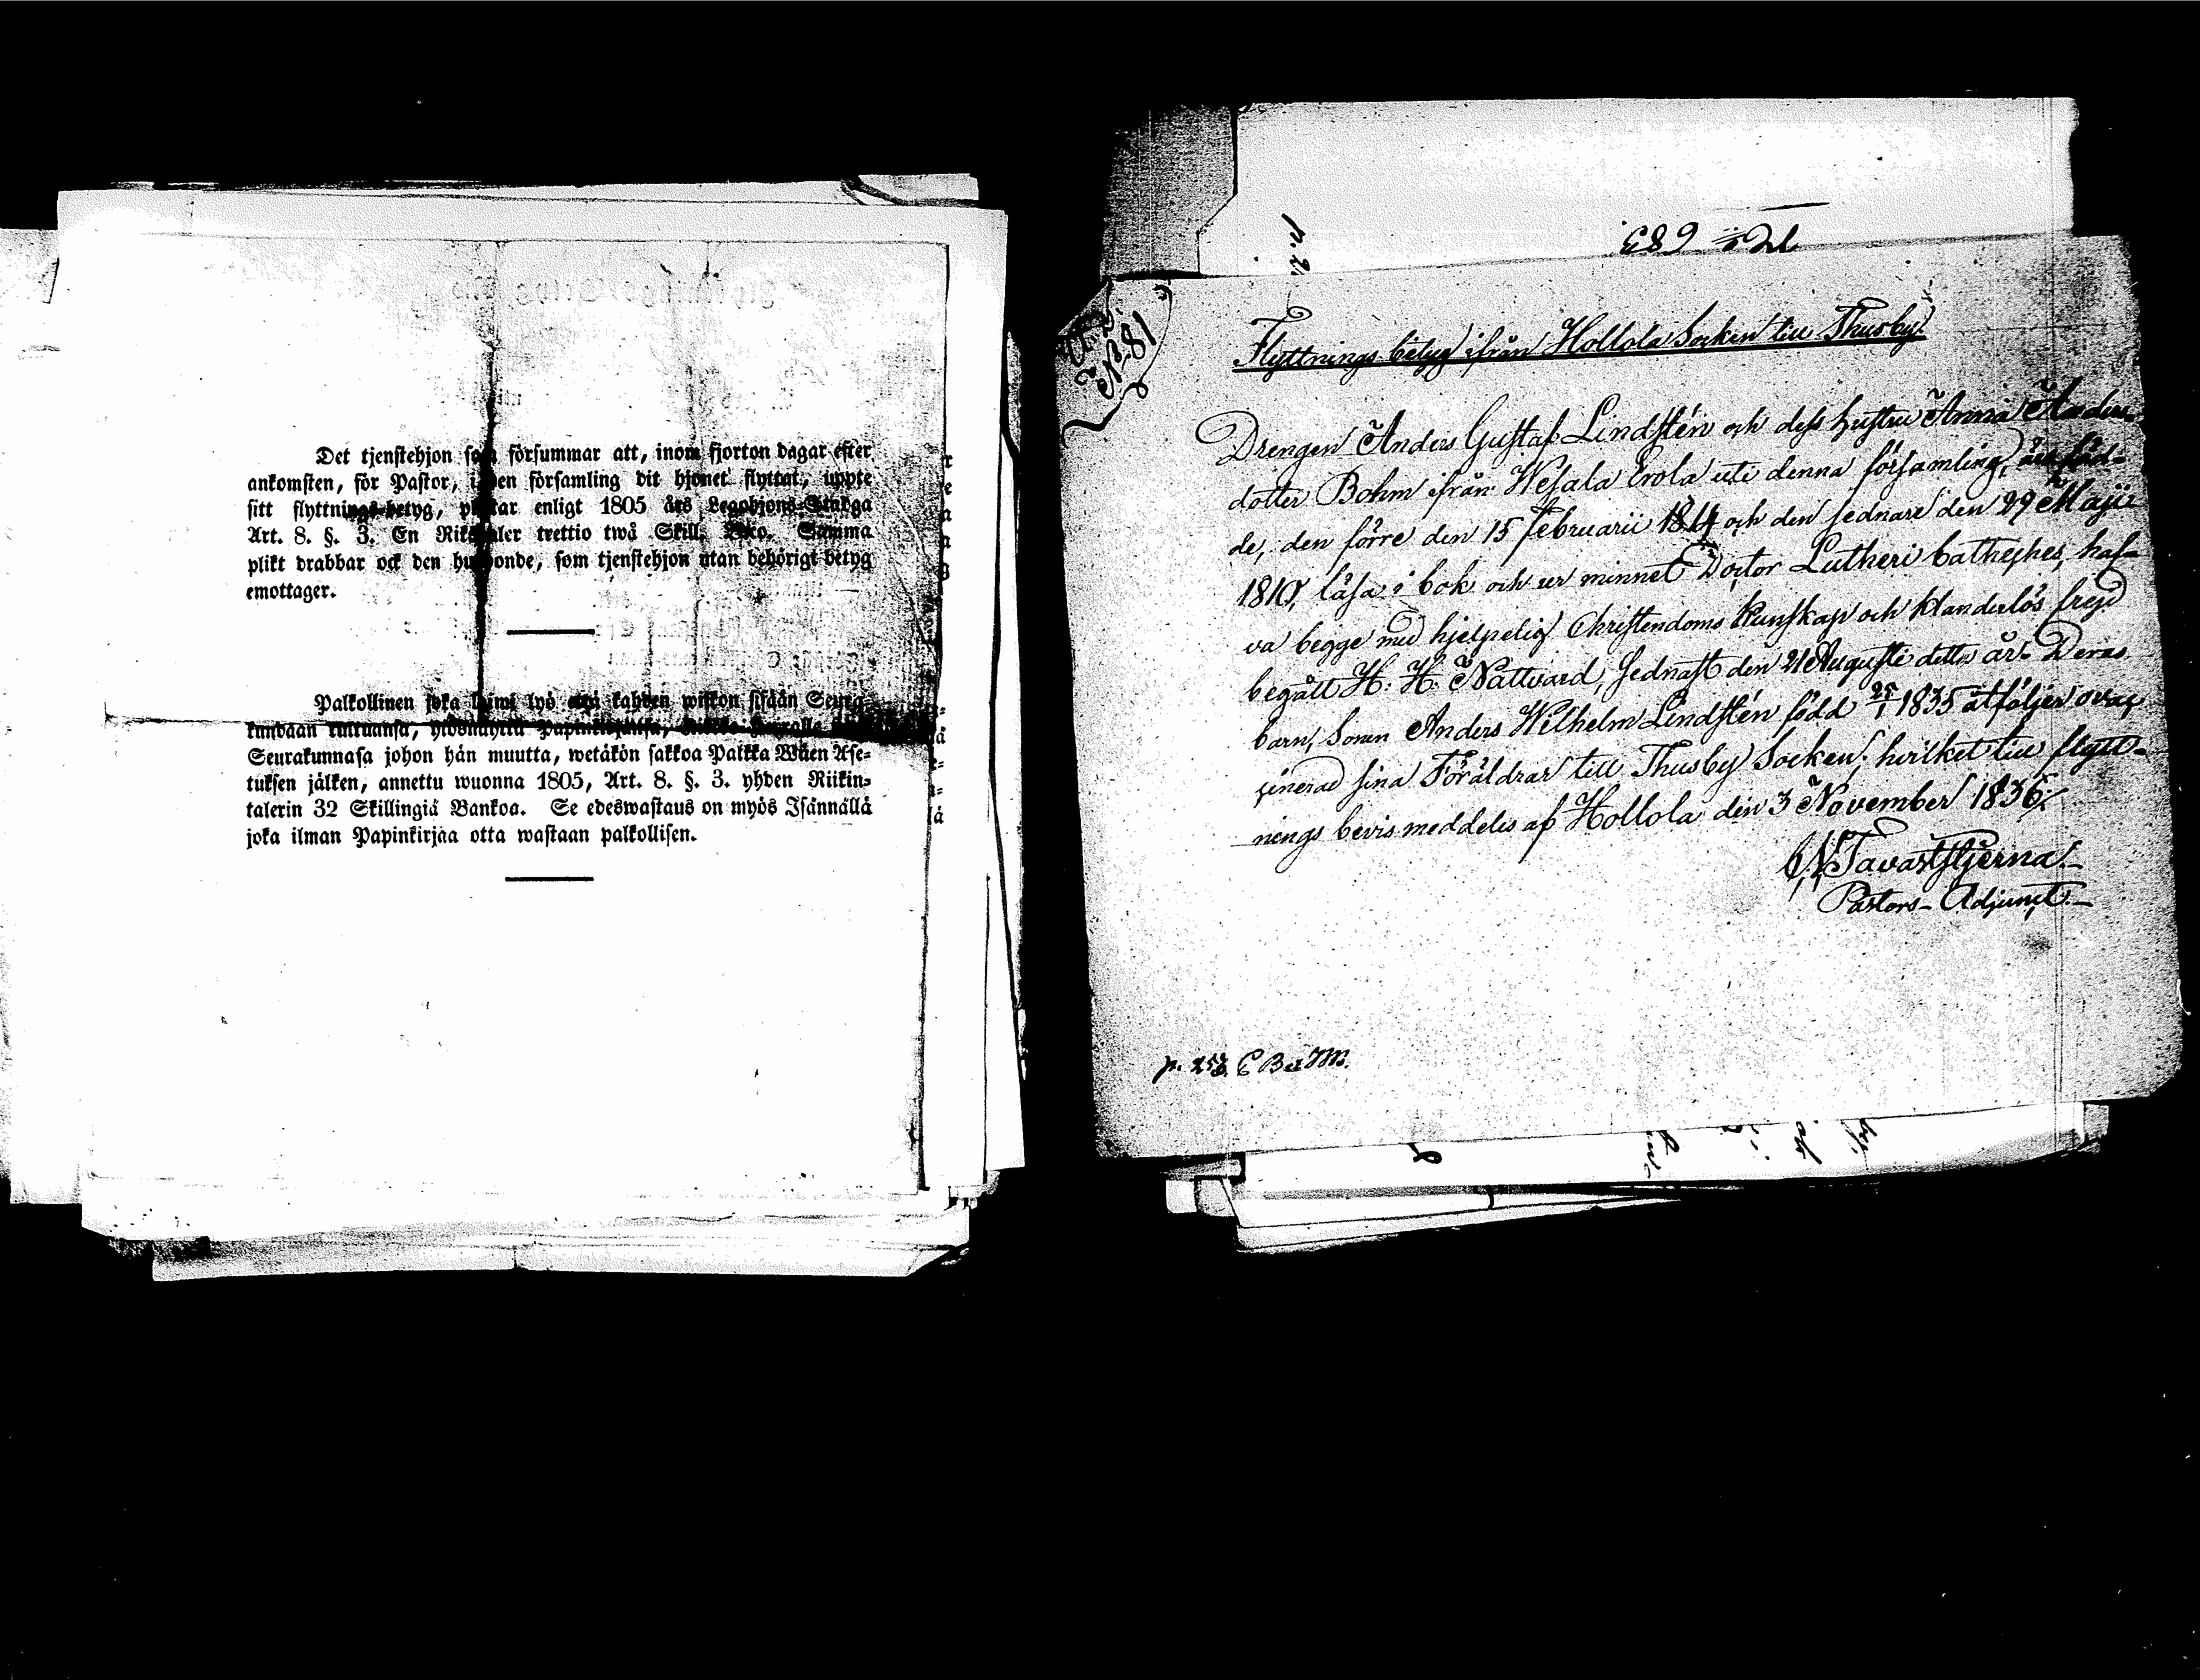 Det tjenstehjon som försummar att, inom fjorton dagar efter
ankomsten, för Pastor, i den församling dit hjonet flyttat, uppte
sitt flyttnings-betyg, pliktar enligt 1805 års Legohjons-Stadga
Art. 8. §. 3. En Riksdaler trettio twå Skill. Bko. Samma
plikt drabbar ock den husbonde, som tjenstehjon utan behörigt betyg
emottager.
Palkollinen joka laimi lyö että kahden wiikon sisään Seura-
kundaan tultuansa, ylösnäyttä Papinkirjansa,
Seurakunnasa johon hän muutta, wetäkön sakkoa Palkka Wäen Ase-
tuksen jälken, annettu wuonna 1805, Art. 8. §. 3. yhden Riikin-
talerin 32 Skillingiä Bankoa. Se edeswastaus on myös Isännällä
joka ilman Papinkirjaa otta wastaan palkollisen.
p. 2
683
N:o 81
Flyttnings betyg ifrån Hollola Socken till Thusby.
Drengen Anders Gustaf Lindstén och dess hustru Anna Anders-
dotter Bohm ifrån Wesala Erola uti denna församling, äro föd-
de, den förre den 15 Februarii 1814 och den sednare den 29 Maji
1810, läsa i bok och ur minnet Doctor Lutheri Catheches, haf-
va begge med hjelpelig Christendoms Kunskap och klanderlös frejd
begått H: H: Nattvard, sednast den 21 Augusti detta år. Deras
barn, Sonen Anders Wilhelm Lindstén född 25/1 1835 åtföljer ovac-
cinerad sina Föräldrar till Thusby Socken; hvilket till flytt-
nings bevis meddeles af Hollola den 3 November 1836.
C. N. Tavaststjerna
Pastors-Adjunct.
p. 253. C B et M.